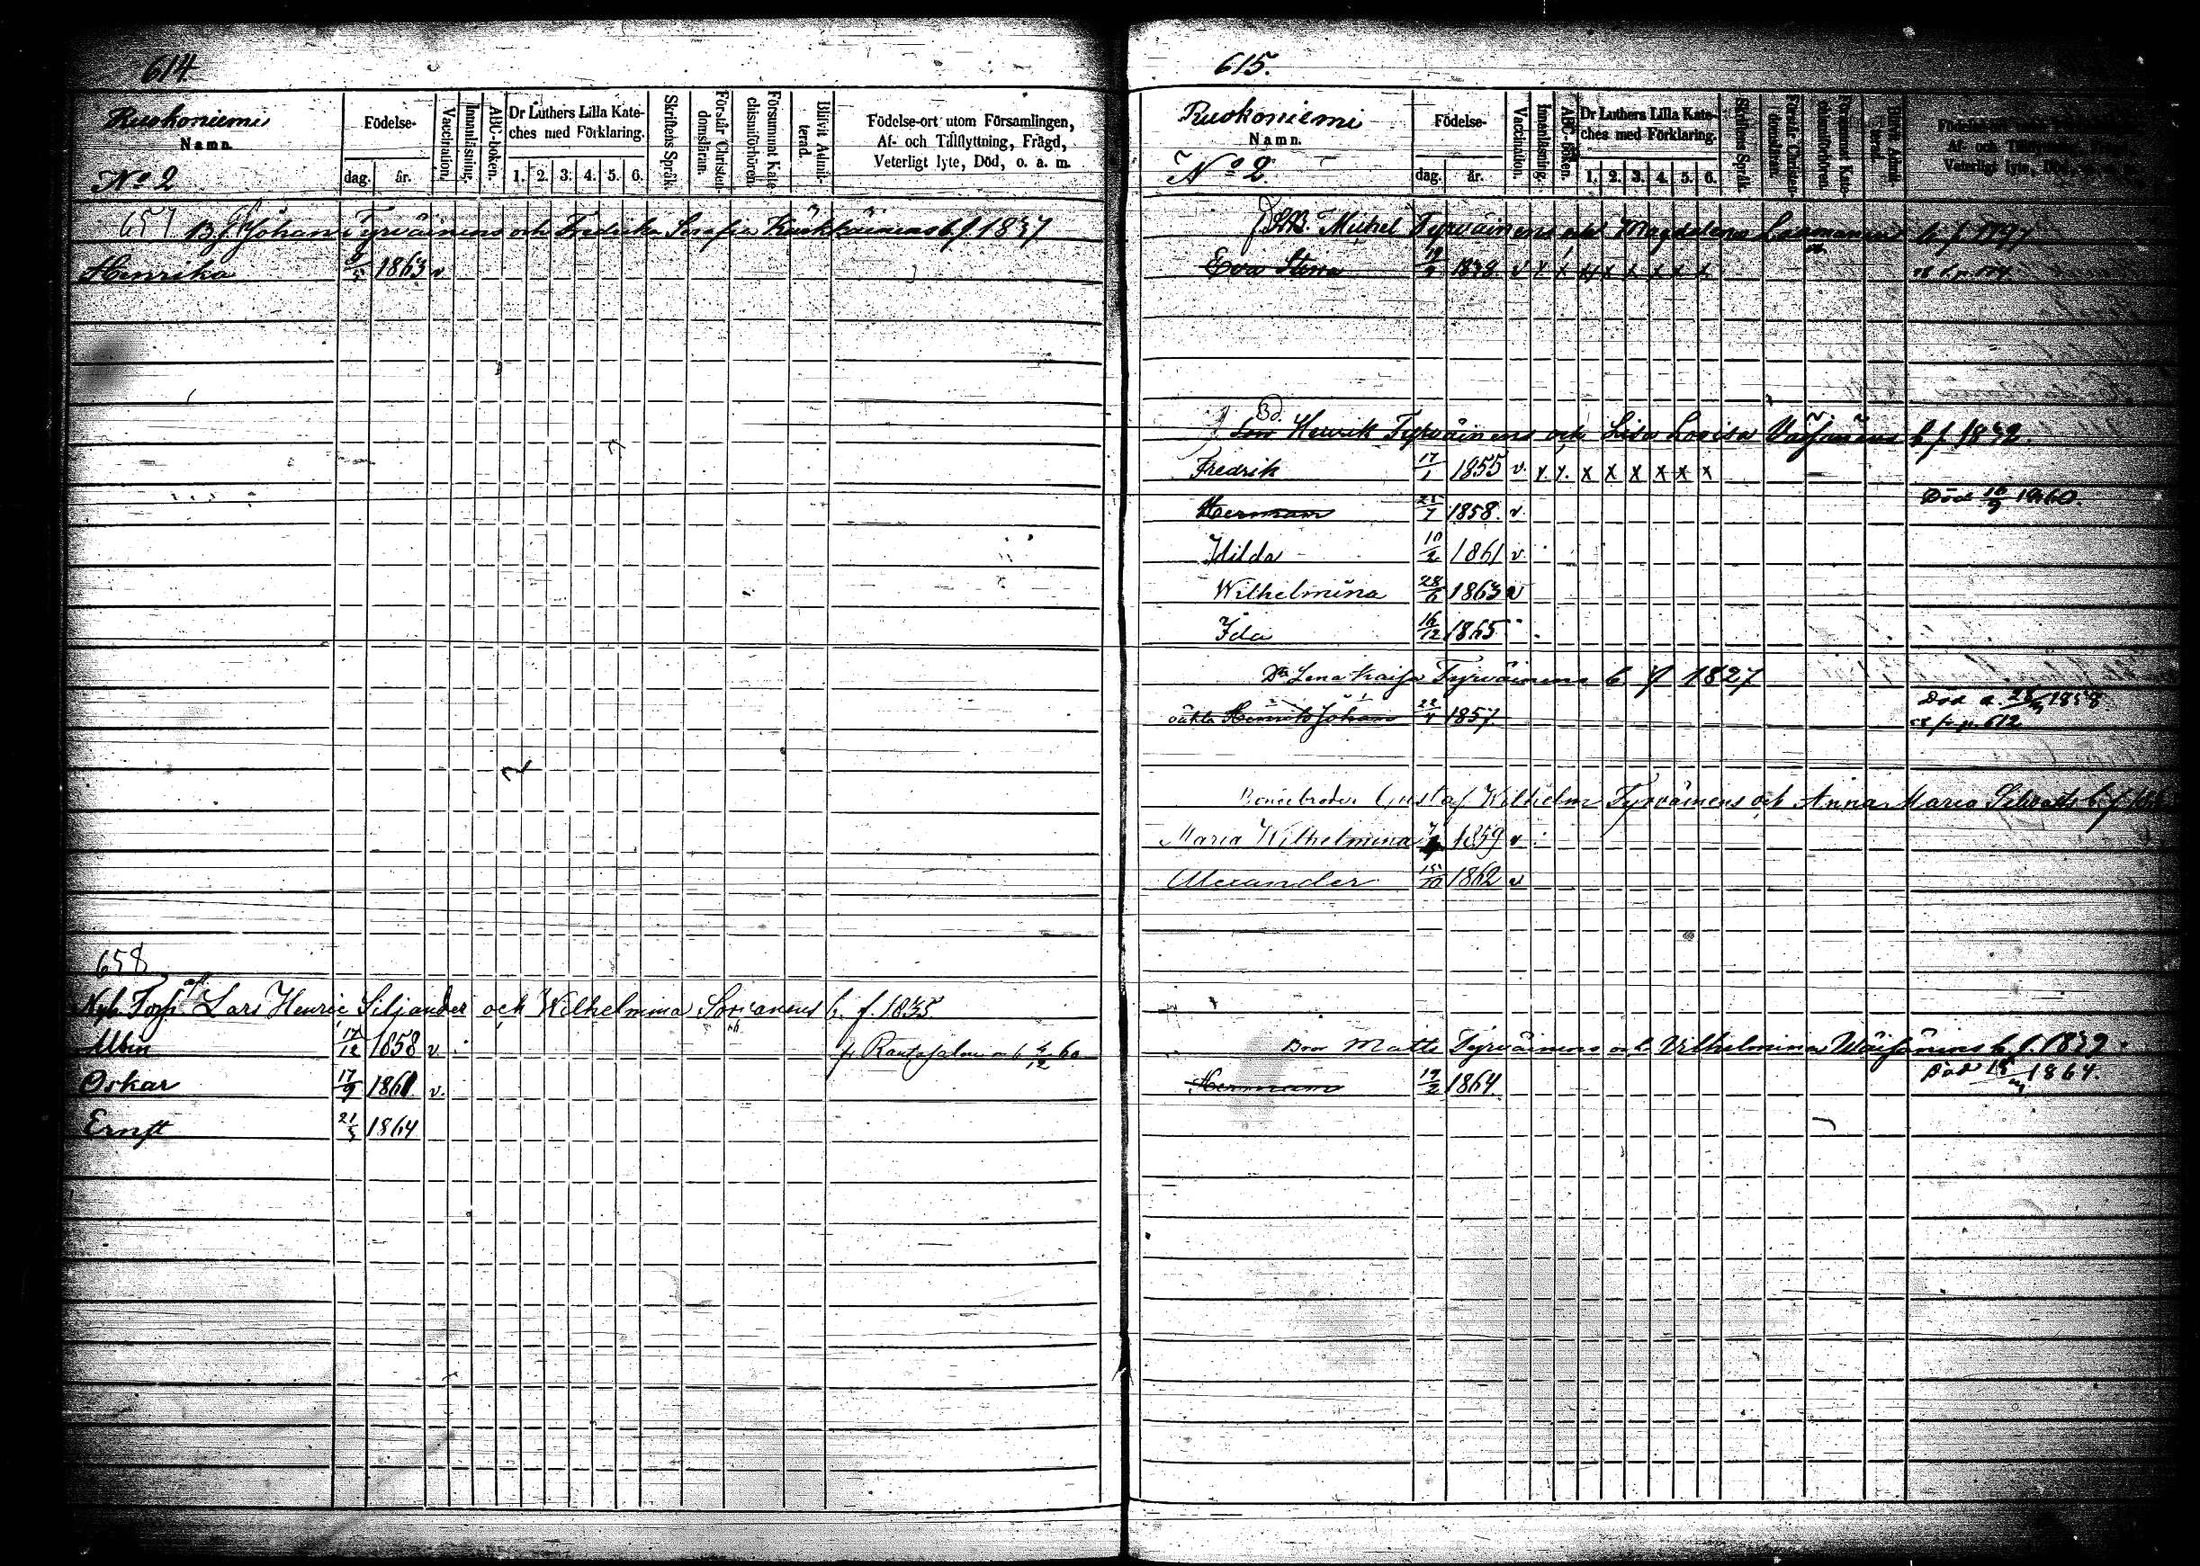 614
Ruokoniemi
Namn.
No 2
Födelse-
dag. år.
Vaccination.
Innanläsning.
ABC-boken.
Dr Luthers Lilla Kate-
ches med Förklaring.
1. 2. 3. 4. 5. 6.
Skriftens Språk.
Förstår Christen-
domsläran.
Försummat Kate-
chismiförhören.
Blivit Admit-
terad.
Födelse-ort utom Församlingen,
Af- och Tillflyttning, Frägd,
Veterligt lyte, Död, o. a. m.
657 Johan Tyrväinens och Fredrika Serafia b. f. 1837
Henrika 1863 v
658
Lars Henric Siljander och Wilhelmina b. f. 1835
Albin 17/12 1858 v
fr Rantasalmi 4/12 60
Oskar 17/9 1861 v.
Ernst 21/5 1864
615.
Ruokoniemi
Namn.
No 2.
Födelse-
dag. år.
Vaccination.
Innanläsning.
ABC-boken.
Dr Luthers Lilla Kate-
ches med Förklaring.
1. 2. 3. 4. 5. 6.
Skriftens Språk.
Förstår Christen-
domsläran.
Försummat Kate-
chismiförhören.
Blivit Admit-
terad.
Af- och Tillflyttning,
Veterligt lyte, Död,
Michel Tyrväinens och Magdalena b. f.
Eva Stina v x x x x x x x x
Bd. Henrik Tyrväinens och Lisa Lovisa Väisänens b. f. 1832.
Fredrik 17/1 1855 v. x x x x x x x x
Herman 25/7 1858. v.
Död 10/9 1860.
Hilda 10/2 1861 v
Wilhelmina 28/6 1863 v
Ida 16/12 1865
Dr Lena Kaisa Tyrväinens b f 1827
oäkta Henrik Johan 22/4 1857
Död 1858
p. 612
Gustaf Wilhelm Tyrväinens och Anna Maria b. f.
Maria Wilhelmina 1859 v
Alexander 15/10 1862 v
Bror Matts Tyrväinens och Vilhelmina Wäisänens b. f. 1839.
Hermam 19/2 1864.
Död 1864.